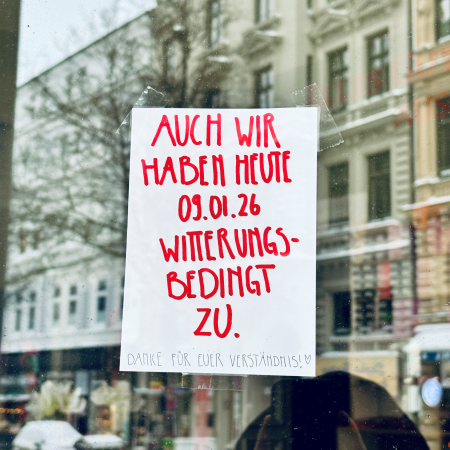 AUCH WIR
HABEN HEUTE
09.01.26
WITTERUNGS-
BEDINGT
ZU.
DANKE FÜR EUER VERSTÄNDNIS!♡